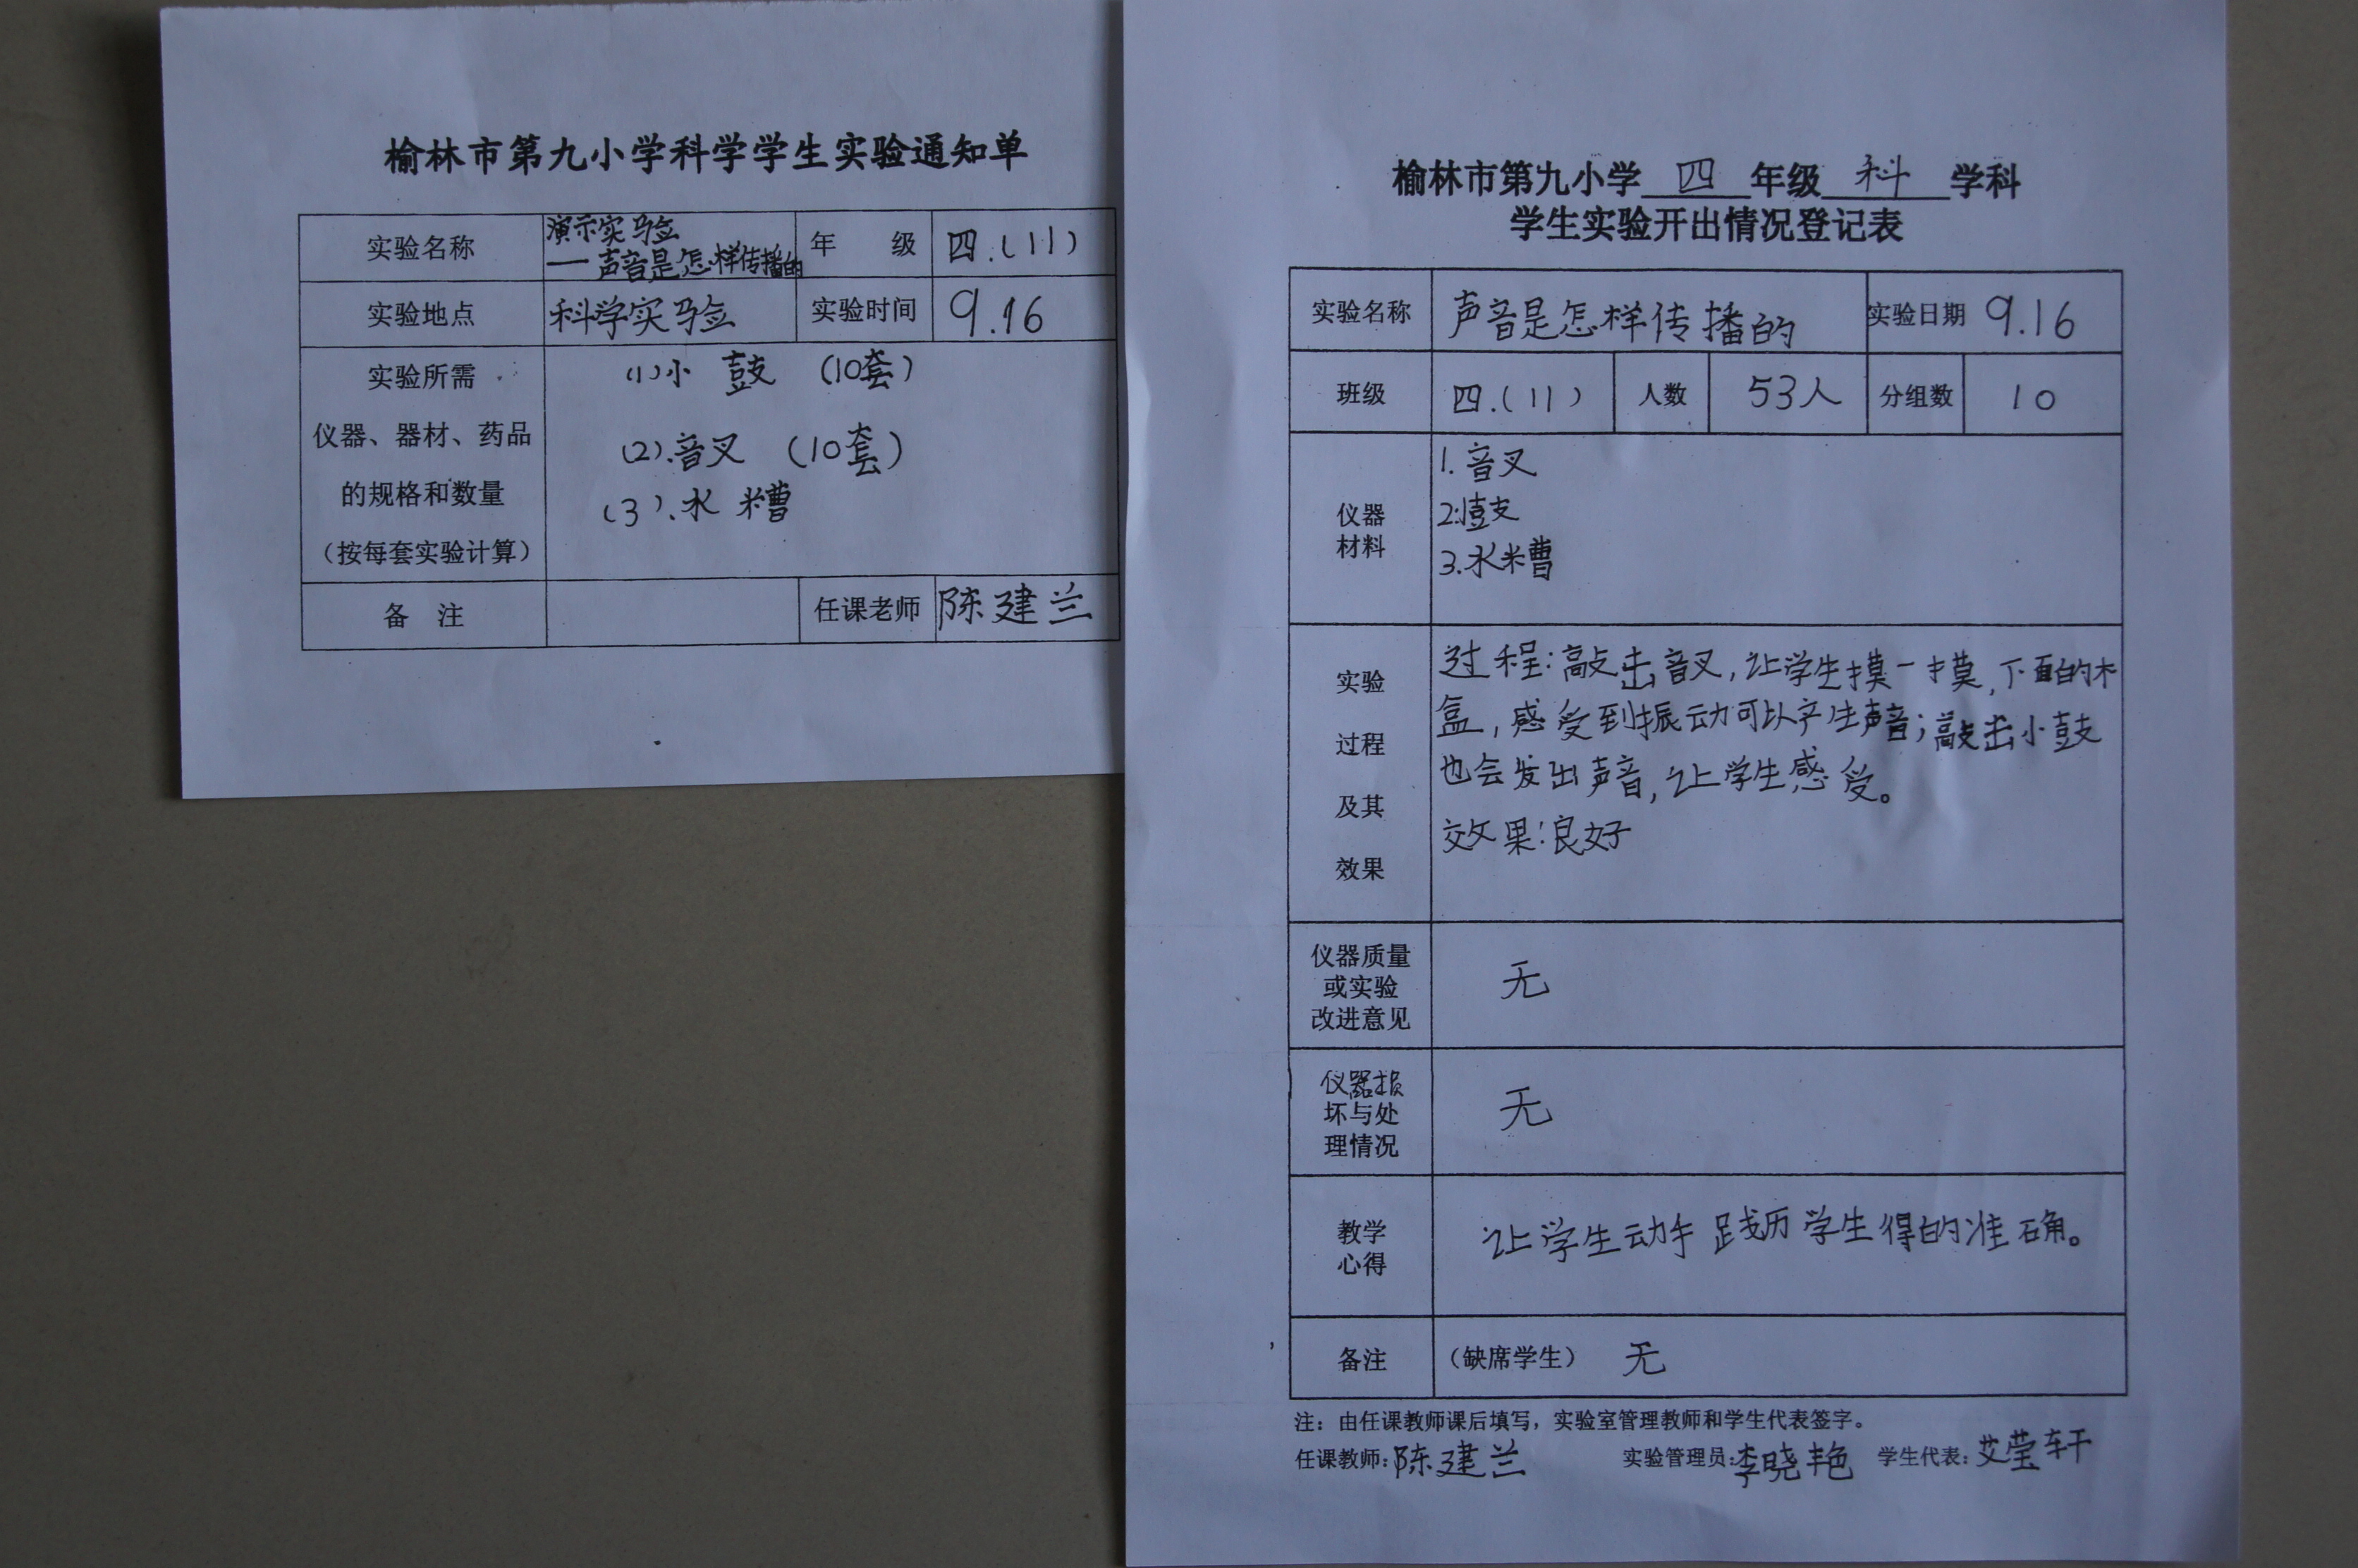 榆林市第九小学科学学生实验通知单
实验名称 演示实验
一声音是怎样传播的 年 级 四.(11)
实验地点 科学实验 实验时间 9.16
实验所需
仪器、器材、药品
的规格和数量
(按每套实验计算)
(1)小 鼓 (10套)
(2).音叉 (10套)
(3).水 槽
备 注 任课老师 陈建兰
榆林市第九小学 四 年级 科 学科
学生实验开出情况登记表
实验名称 声音是怎样传播的 实验日期 9.16
班级 四.(11) 人数 53人 分组数 10
仪器
材料
1.音叉
2.鼓
3.水槽
实验
过程
及其
效果
过程:敲击音叉,让学生摸一摸,下面的木
盒,感受到振动可以产生声音;敲击小鼓
也会发出声音,让学生感受。
效果:良好
仪器质量
或实验
改进意见
无
仪器损
坏与处
理情况
无
教学
心得
让学生动手践历学生得的准确。
备注 (缺席学生) 无
注:由任课教师课后填写,实验室管理教师和学生代表签字。
任课教师:陈建兰 实验管理员:李晓艳 学生代表:艾莹轩